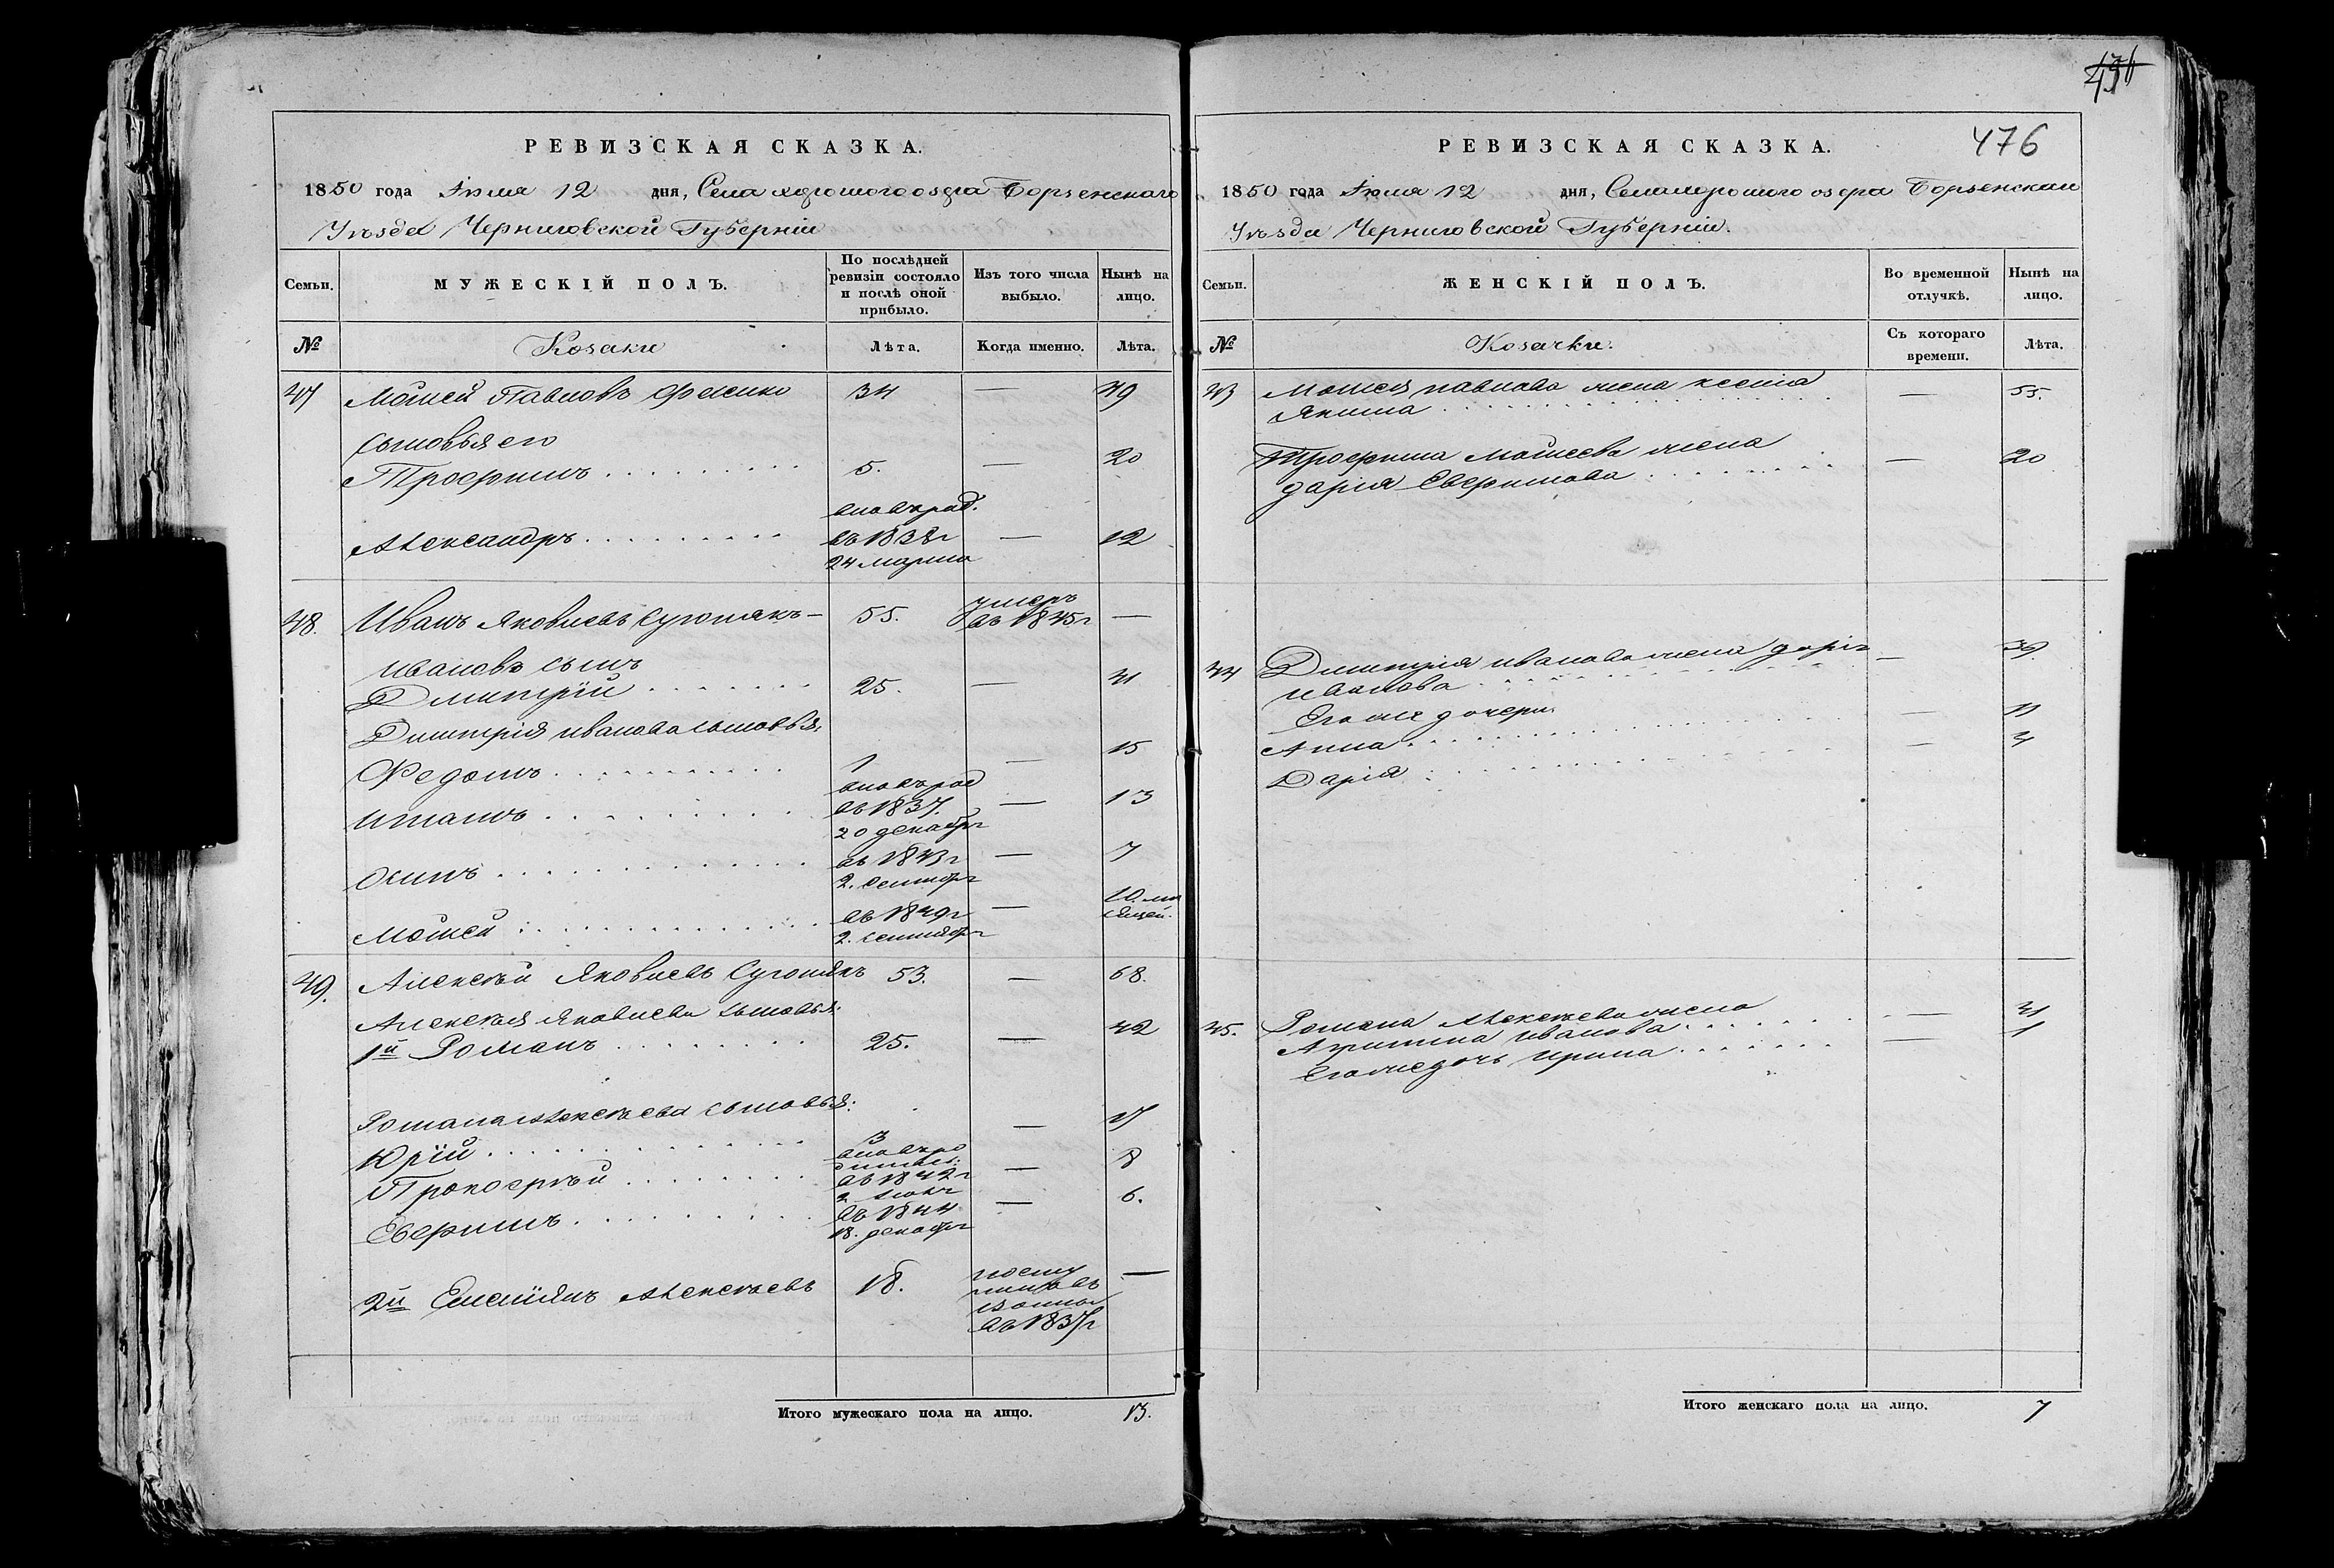 РЕВИЗСКАЯ СКАЗКА.
1850 года Іюля 12 дня, Села хорошого озера Борзенскаго
Уѣзда Черниговской Губерніи
Семьи.
МУЖЕСКІЙ ПОЛЪ.
По послѣдней ревизіи состояло и послѣ оной прибыло.
Изъ того числа выбыло.
Нынѣ на лицо.
№
Козаки
Лѣта.
Когда именно.
Лѣта.
47 Мойсей Павловъ 34 — 49
сыновья его
Трофимъ 5. — 20
вновь род.
Александръ въ 1838г — 12
24 марта
48. Иванъ Яковлевъ Сугонякъ — 55. умеръ въ 1845г —
Ивановъ сынъ
Дмитрій 25. — 41
Дмитрія Иванова сыновья,
Федотъ 1 — 15
вновь род
Игнатъ въ 1837. — 13
20 декабря
Осипъ въ 1843г — 7
2. сентября
Мойсей въ 1849г — 10. мѣсяцей.
2. сентября
49. Алексѣй Яковлевъ Сугонякъ 53. — 68.
Алексѣя Яковлева сыновья:
1й Романъ 25. — 42
Романа Алексѣева сыновья:
Юрій 3 — 17
вновь ро
Прокофѣй въ 1842г — 8
Еверимъ въ 1844 — 6.
18. декабря
2й Емеліянъ Алексѣевъ 18. —
посту
пилъ въ
въ 1837г
Итого мужескаго пола на лицо. 13.
476
РЕВИЗСКАЯ СКАЗКА.
1850 года Іюля 12 дня, Села хорошого озера Борзенскаго
Уѣзда Черниговской Губерніи.
Семьи.
ЖЕНСКІЙ ПОЛЪ.
Во временной отлучкѣ.
Нынѣ на лицо.
№
Козачки.
Съ котораго времени.
Лѣта.
43 Мойсея Павлова жена ксенія — 55.
Якима
Трофима Мойсеева жена — 20
дарія Еверимова
44 Дмитрія Иванова жена дарія — 39.
Иванова
Его же дочери
Анна — 11
Дарія — 4
45. Романа Алексѣева жена — 41
Иванова
Его же дочь Ирина — 1
Итого женскаго пола на лицо. 7